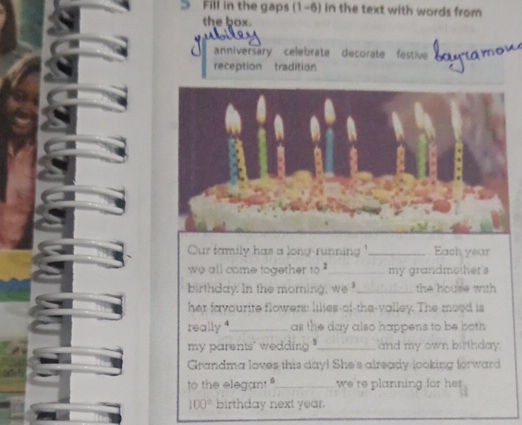 5 Fill in the gaps (1-6) in the text with words from
the box.
yubiley
anniversary celebrate decorate festive bayramona
reception tradition
Our family has a long-running ¹________. Each year
we all come together to ²________ my grandmother's
birthday. In the morning, we ³________ the house with
her favourite flowers: lilies-of-the-valley. The mood is
really ⁴________ as the day also happens to be both
my parents' wedding ⁵________ and my own birthday.
Grandma loves this day! She's already looking forward
to the elegant ⁶________ we're planning for her
100ᵗʰ birthday next year.